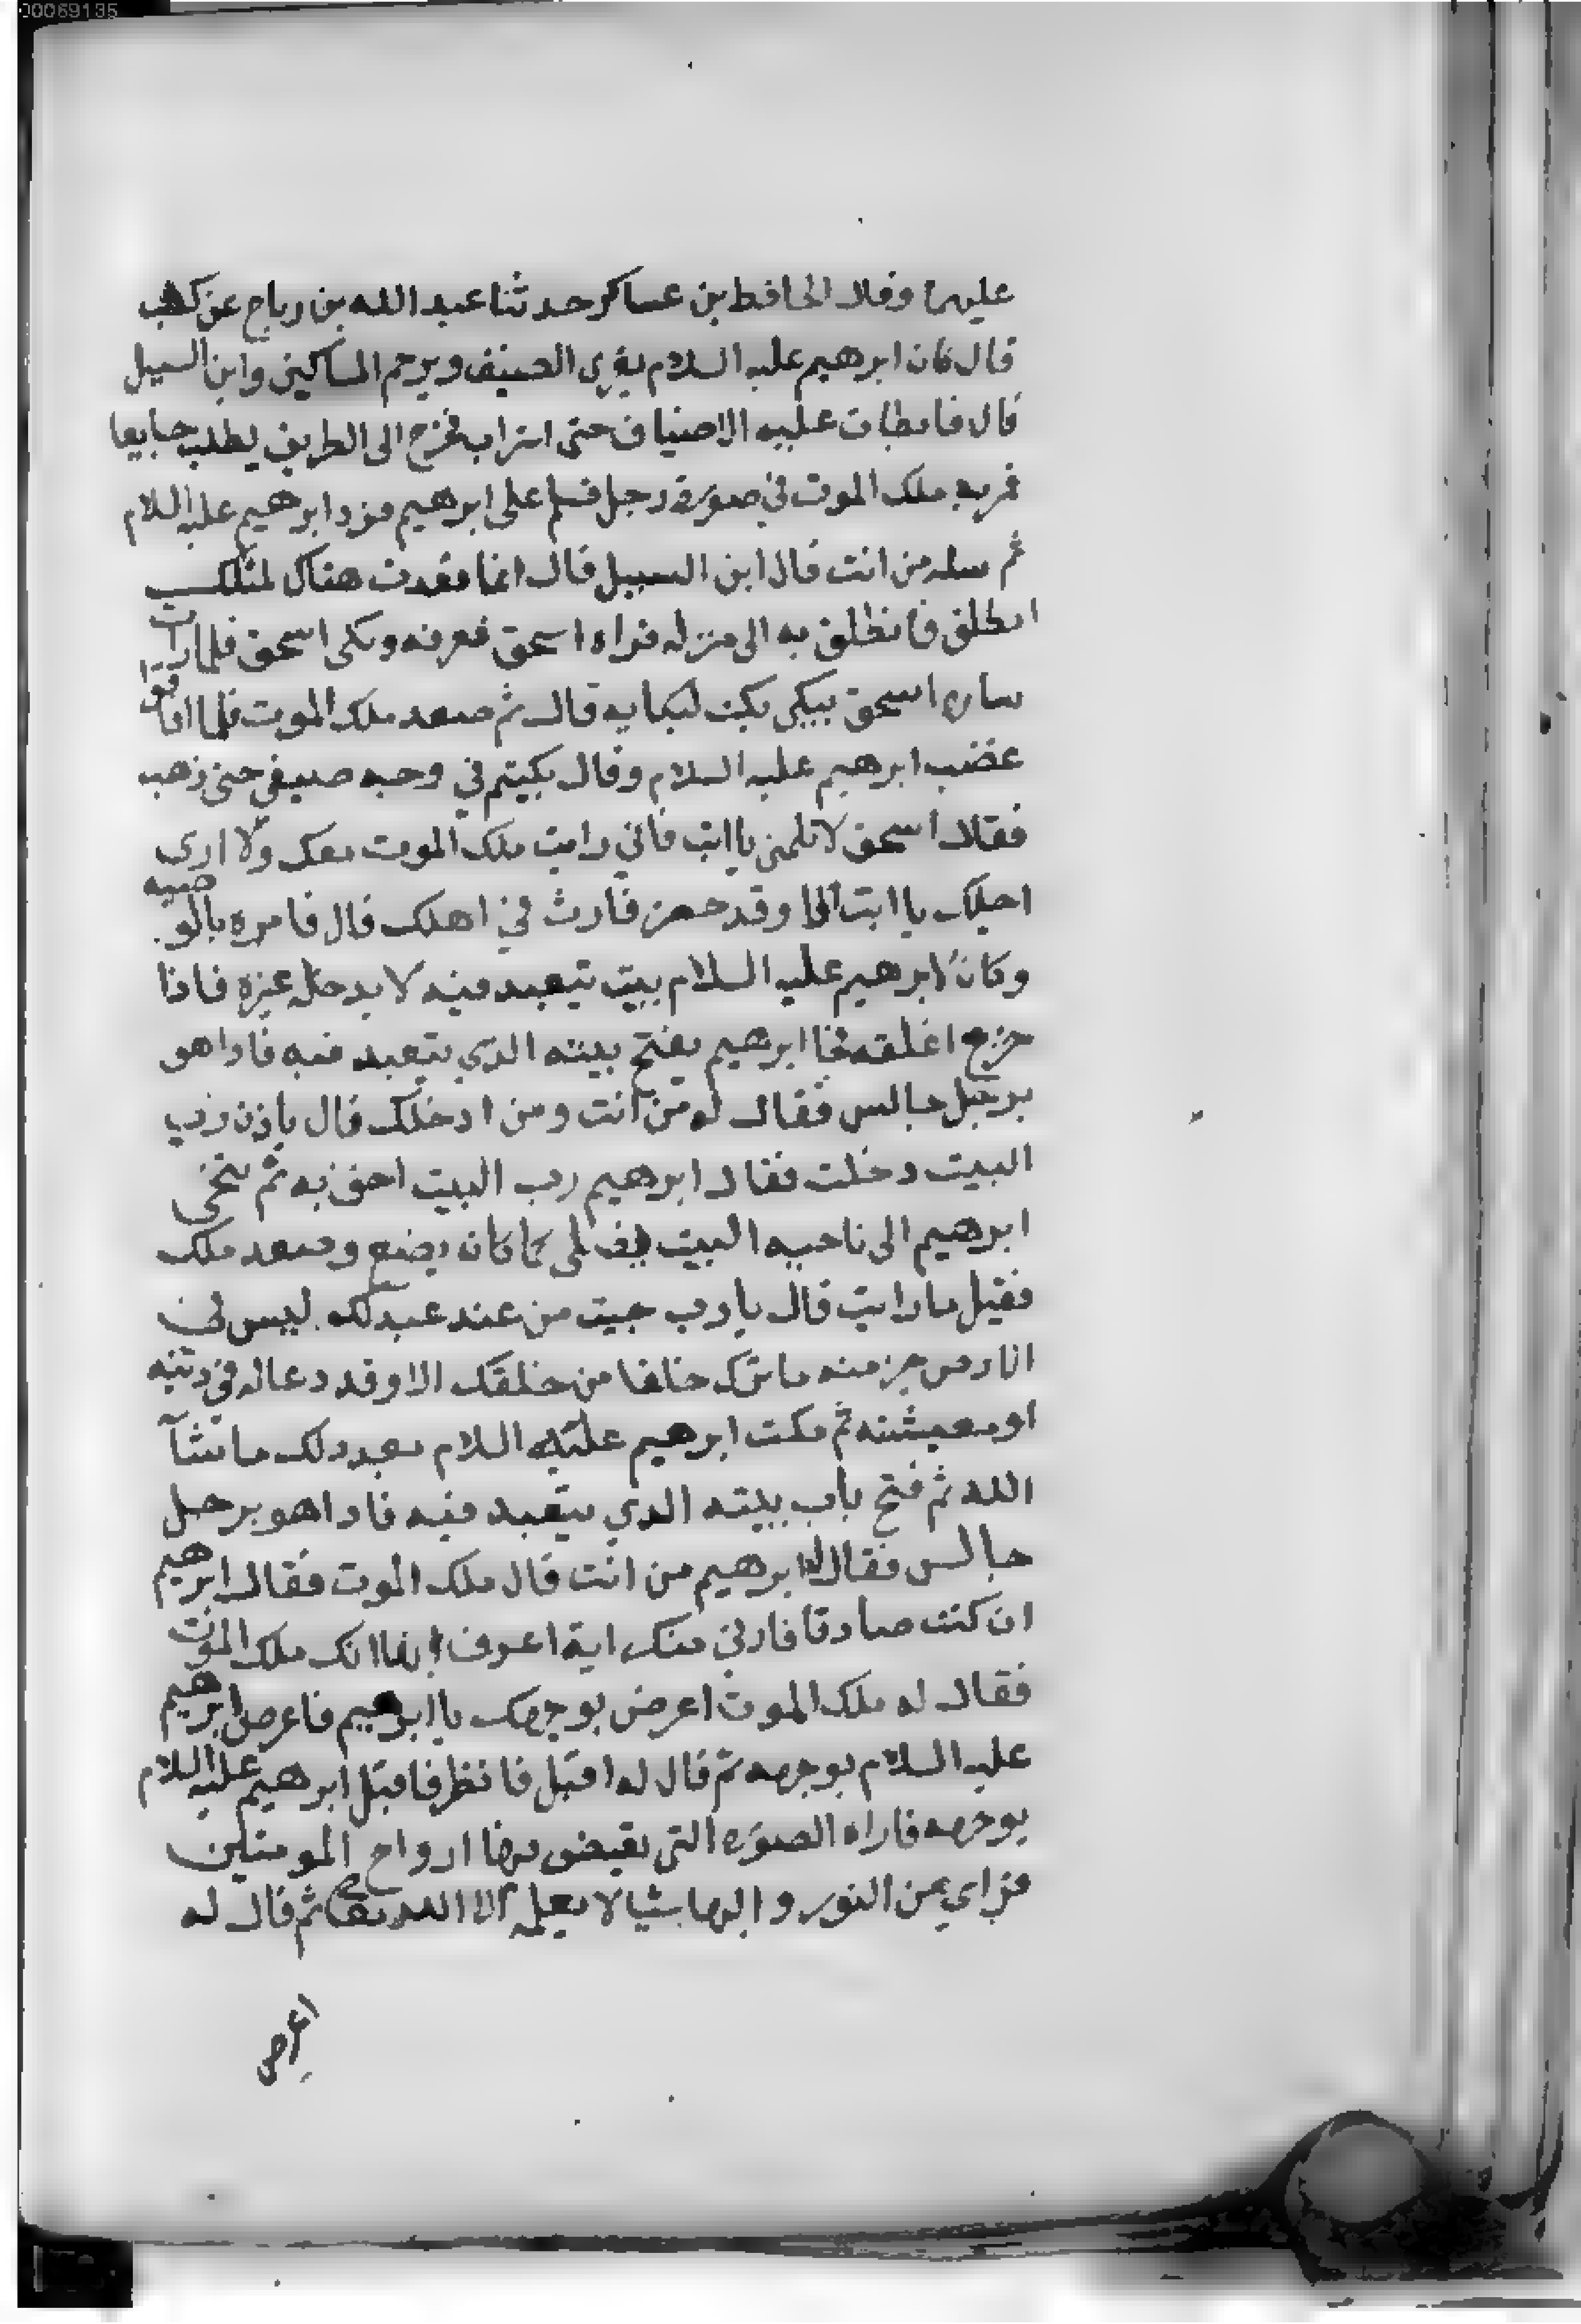 00069135
عليهما وقال الحافط بن عساكر حدثنا عبد الله بن رباح عن كعب
قال كان ابرهيم عليه السلام يقري الضيف ويرحم المساكين وابن السبيل
قال فابطات عليه الاضياف حتى استراب فخرج الى الطريق يطلب جايعا
فمر به ملك الموت في صورة رجل فسلم على ابرهيم فرد ابرهيم عليه السلام
ثم سله من انت قال ابن السبيل قال انما قعدت هناك لمثلك
انطلق فانطلق به الى منزله فراه اسحق فعرفه وبكى اسحق فلما رات
ساره اسحق يبكي بكت لبكايه قال ثم صعد ملك الموت فلما افاقوا
غضب ابرهيم عليه السلام وقال بكيتم في وجه ضيفي حتى ذهب
فقال اسحق لا تلمني يا ابت فاني رايت ملك الموت معك ولا ارى
اجلك يا ابت الا وقد حضر فارث في اهلك قال فامره بالوصيه
وكان لابرهيم عليه السلام بيت يتعبد فيه لا يدخله غيره فاذا
خرج اغلقه فجا ابرهيم يفتح بيته الذي يتعبد فيه فاذا هو
برجل جالس فقال له من انت ومن ادخلك قال باذن رب
البيت دخلت فقال ابرهيم رب البيت احق به ثم تنحى
ابرهيم الى ناحيه البيت يصلي كما كان يصنع وصعد ملك
فقيل ما رايت قال يا رب جيت من عند عبد لك ليس لي
الارض خير منه ما ترك خلقا من خلقك الا وقد دعا له في دينه
او معيشته ثم مكث ابرهيم عليه السلام بعد ذلك ما شآ
الله ثم فتح باب بيته الذي يتعبد فيه فاذا هو برجل
جالس فقال له ابرهيم من انت قال ملك الموت فقال ابرهيم
ان كنت صادقا فارني منك اية اعرف انك ملك الموت
فقال له ملك الموت اعرض بوجهك يا ابرهيم فاعرض ابرهيم
عليه السلام بوجهه ثم قال له اقبل فانظر فاقبل ابرهيم عليه السلام
بوجهه فاراه الصوره التي يقبض بها ارواح المومنين
فراي من النور و البها شيا لا يعلمه الا الله تعالى ثم قال له
اعرض